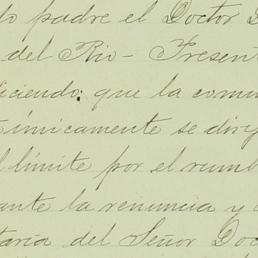 do padre el Doctor D
del Rio - Present
iciendo: que la comu
únicamente se dirij
l límite por el rumb
ante la renuncia y
taria del Señor Doc